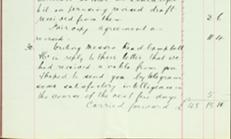 it on perusing revised draft
received from them 2 6
Fair copy agreement as
revised 11 4
30. Writing Messrs Read Campbell
in reply to their letter that we
had received a cable from you
& hoped to send you by telegram
some satisfactory intelligence in
the course of the next few days 5
Carried forward £ 45 15 11